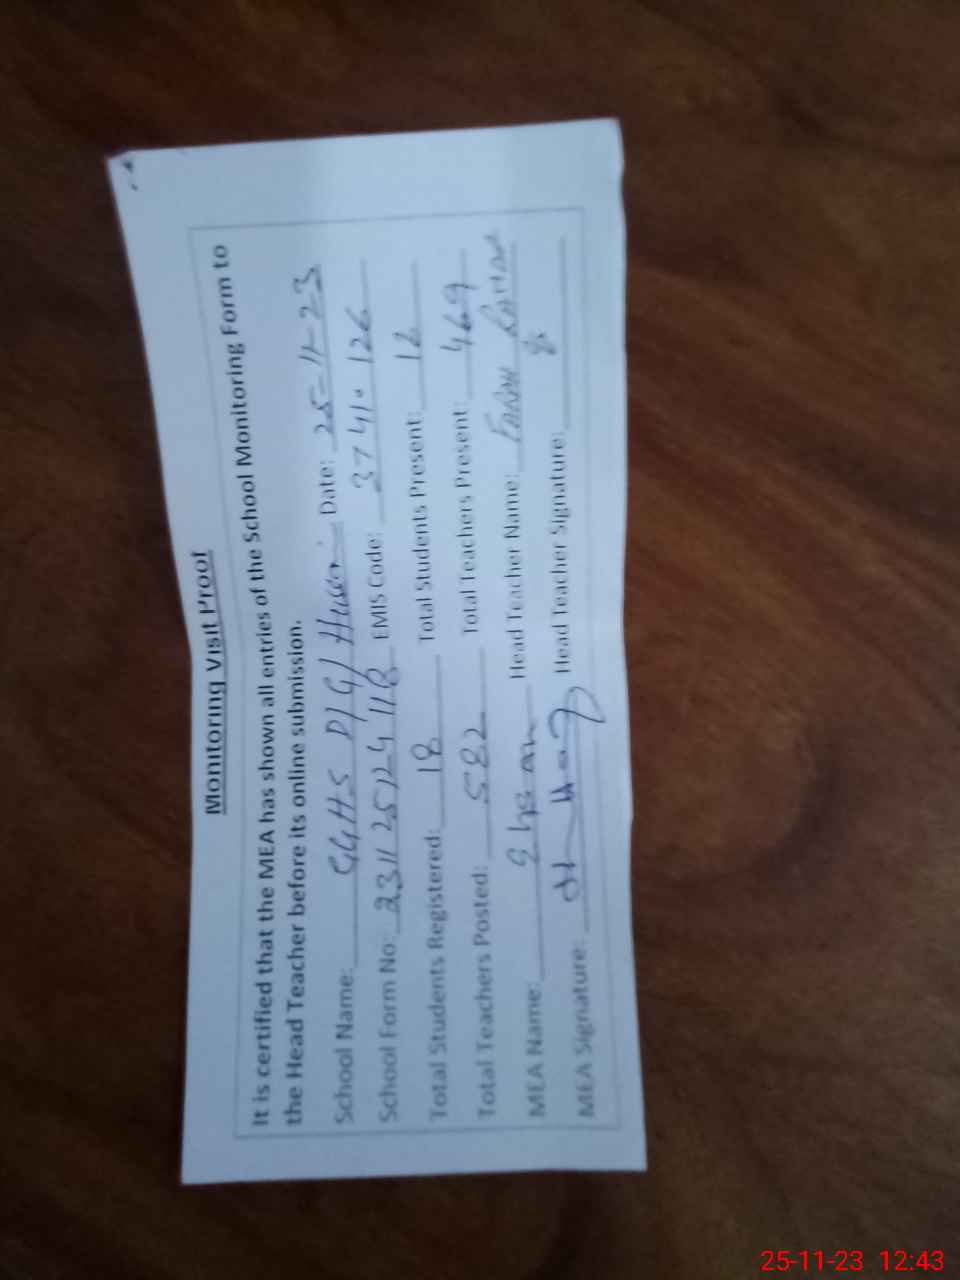 Monitoring Visit Proof
It is certified that the MEA has shown all entries of the School Monitoring Form to
the Head Teacher before its online submission.
School Name: GGHS D/G/ Date: 25-11-23
School Form No: 231125124118 EMIS Code: 37410126
Total Students Registered: 18 Total Students Present: 16
Total Teachers Posted: 582 Total Teachers Present: 469
MEA Name: Ehsan Head Teacher Name: Farah
MEA Signature: Head Teacher Signature:
25-11-23 12:43